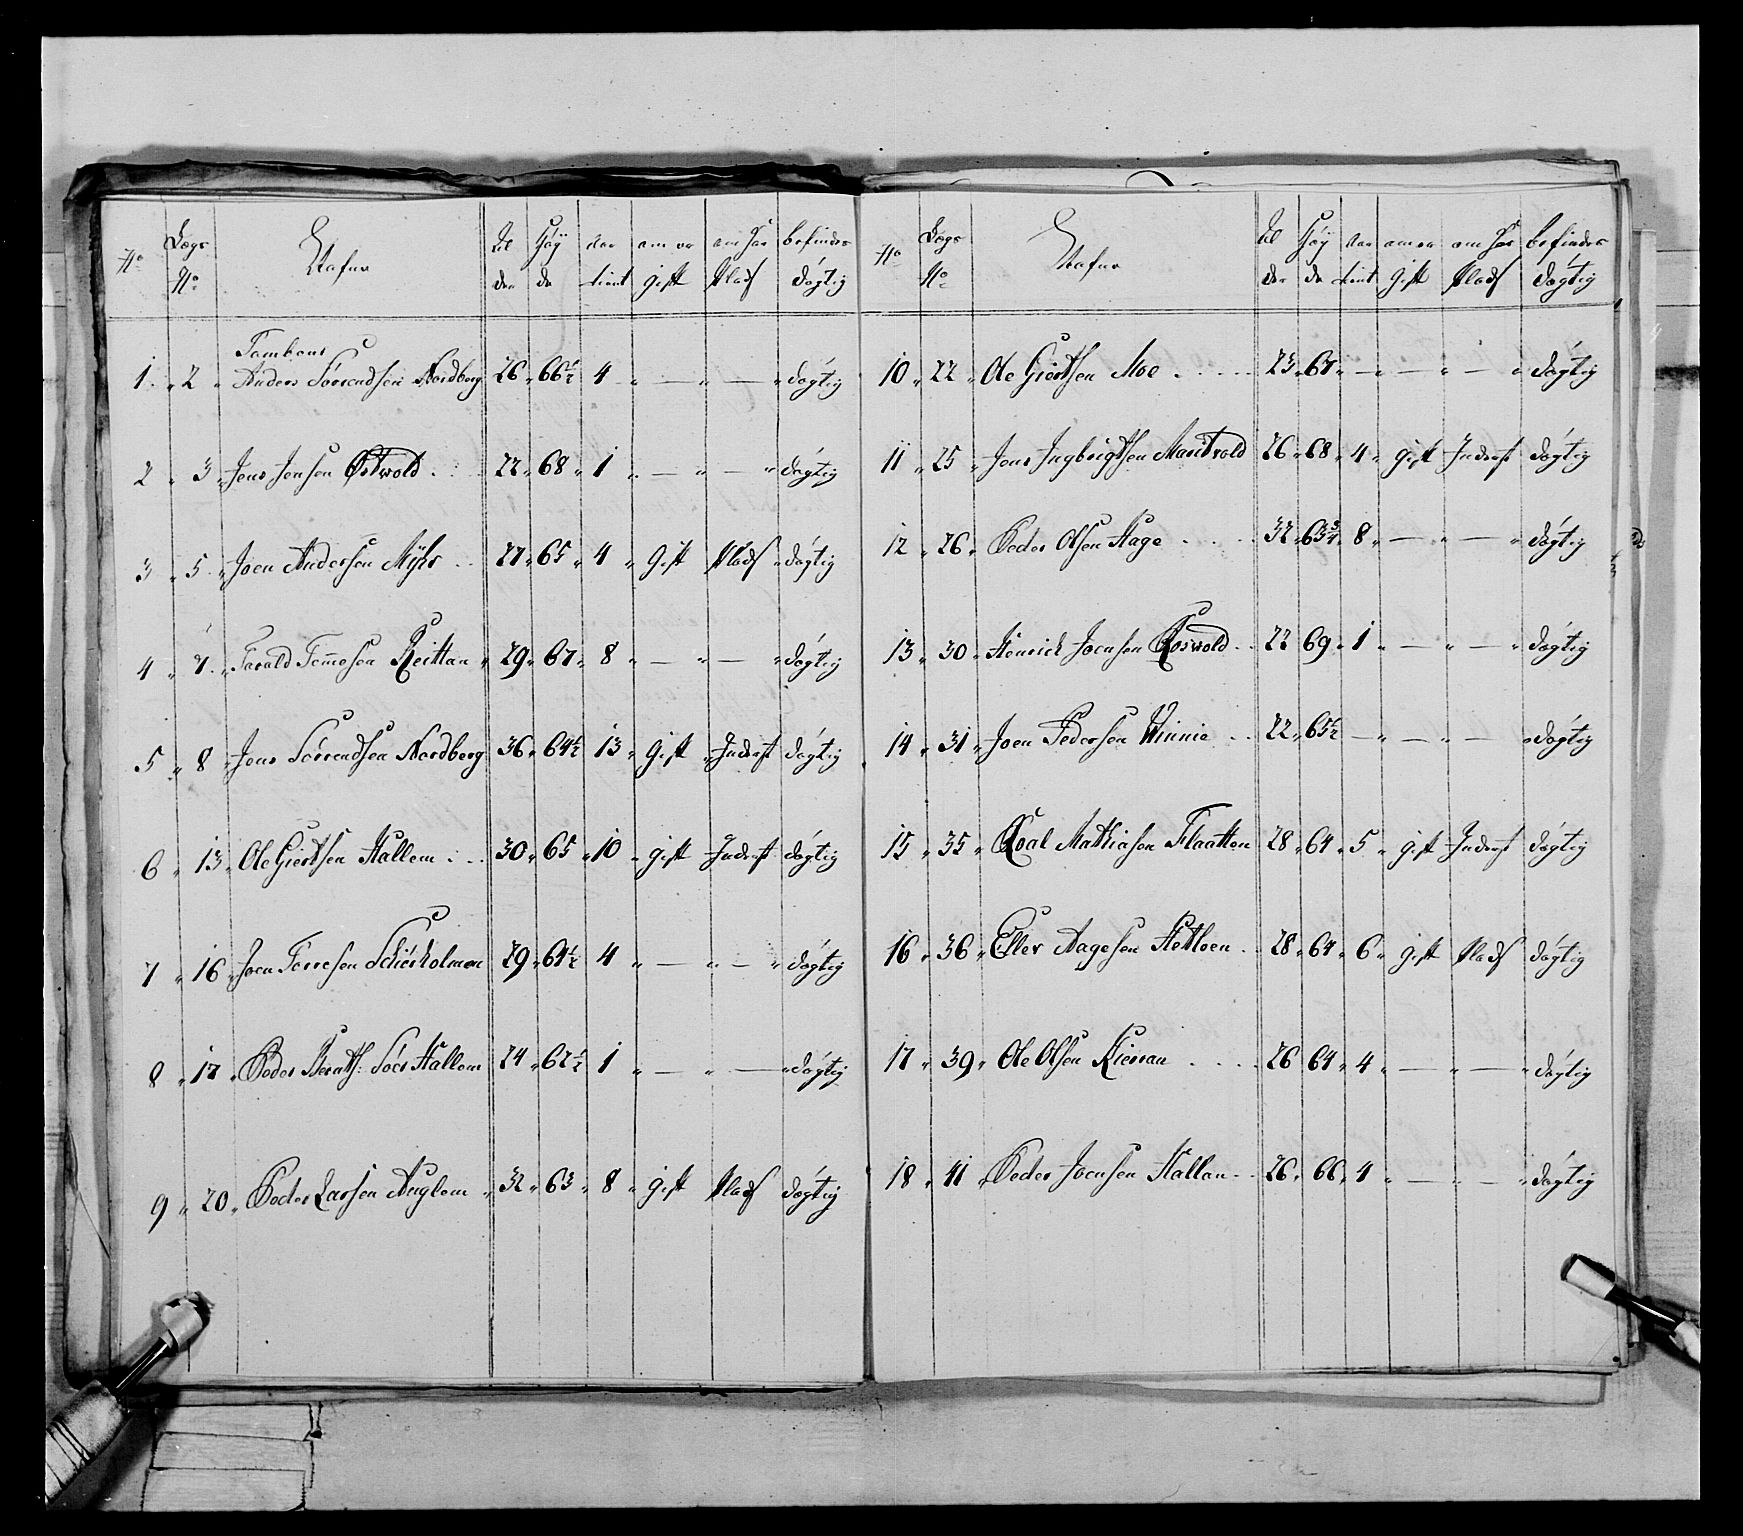 No Lægs No Nafne Alder Høyde har tient om er gift om har Plads befindes døgtig
Tambour
1 " 2 " Anders Sørrendsen Nordberg 26 " 66½ 4 " — " — " døgtig
2 " 3 " Jens Jensen Østwold 22 " 68 " 1 " — " — " døgtig
3 " 5 " Joen Andersen Myhr 27 " 65 " 4 " Gift Plads " døgtig
4 " 7 " Harald Tommesen Reittan " 29 " 67 " 8 " — " — " døgtig
5 " 8 " Jens Sørrendsen Nordberg 36 " 64½ 13 " Gift " Inderst døgtig
6 " 13 " Ole Giertsen Hallem 30 " 65 " 10 " gift Inderst døgtig
7 " 16 " Joen Torresen Schiesholmen 29 " 64½ 4 " — " — " døgtig
8 " 17 " Peder Berntß: Søer Hallem 24 " 62½ 1 " — " — " døgtig
9 " 20 " Peder Larsen Auglem " 32 " 63 " 8 " gift Plads døgtig
No Lægs No Nafne Alder Høyde har tient om er gift om har Plads befindes døgtig
10 " 22 " Ole Giertsen Moe 23 " 67 " — " — " — " døgtig
11 " 25 " Jens Ingbrigtsen Maritvold 26 " 68 " 4 " gift Inderst døgtig
12 " 26 " Peder Olsen Hage 32 " 63¾ " 8 " — " — " døgtig
13 " 30 " Henrich Joensen Roswold 22 69 " 1 " — " — " døgtig
14 " 31 " Joen Pedersen Winnie 22 " 65½ — " — " — " døgtig
15 " 35 " Roal Mathiasen Flaatten 28 " 64 " 5 " gift Inderst døgtig
16 " 36 " Eller Aagesen Hetloen 28 " 64 " 6 " gift Plads døgtig
17 " 39 " Ole Olsen Kieran 26 64 " 4 " — " — " døgtig
18 " 41 " Peder Joensen Hallan 26 " 66 " 4 " — " — " døgtig